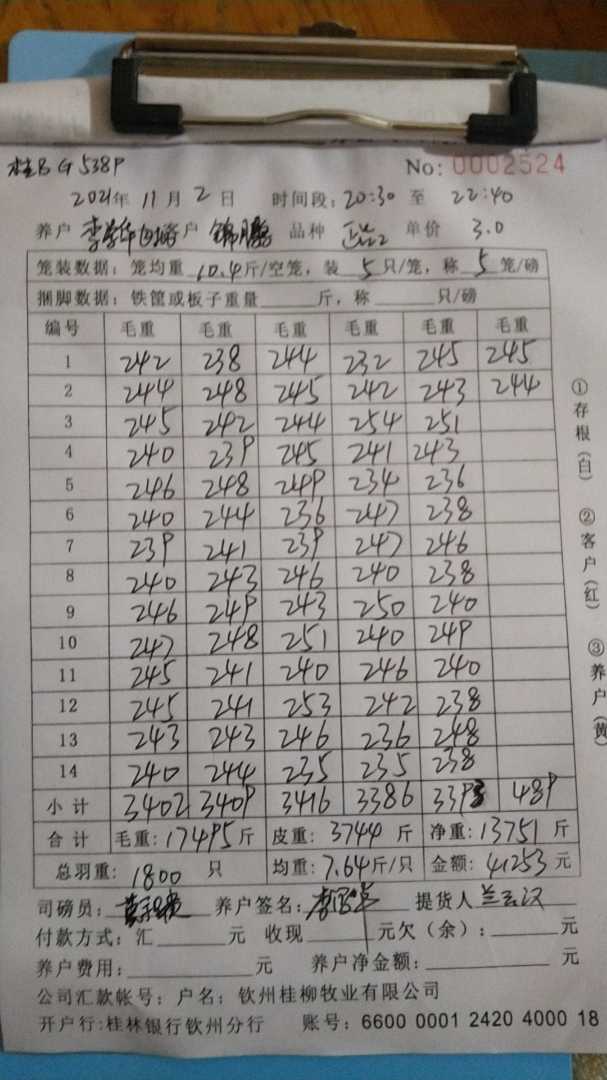 桂B G 538P
No: 0002524
2021年 11月 2日 时间段: 20:30 至 22:40
养户 客户 锦鹏 品种 单价 3.0
笼装数据: 笼均重 10.4斤/空笼, 装 5 只/笼, 称 5 笼/磅
捆脚数据: 铁筐或板子重量 斤, 称 只/磅
编号 毛重 毛重 毛重 毛重 毛重 毛重
1 242 238 244 232 245 245
2 244 248 245 242 243 244
3 245 242 244 254 251
4 240 239 245 241 243
5 246 248 249 234 236
6 240 244 236 247 238
7 239 241 239 247 246
8 240 243 246 240 238
9 246 249 243 250 240
10 247 248 251 240 249
11 245 241 240 246 240
12 245 241 253 242 238
13 243 243 246 236 248
14 240 244 235 235 238
小计 3402 3409 3416 3386 3393 489
合计 毛重: 17495 斤 皮重: 3744 斤 净重: 13751 斤
总羽重: 1800 只 均重: 7.64斤/只 金额: 41253 元
司磅员: 养户签名: 提货人
付款方式: 汇 元 收现 元欠(余): 元
养户费用: 元 养户净金额: 元
公司汇款帐号: 户名: 钦州桂柳牧业有限公司
开户行: 桂林银行钦州分行 账号: 6600 0001 2420 4000 18
①存根(白) ②客户(红) ③养户(黄